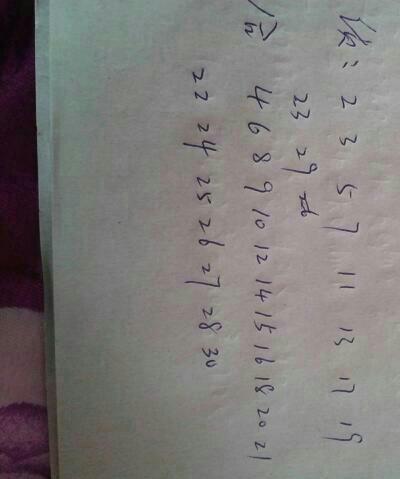 质: 2 3 5 7 11 13 17 19
23 29
合 4 6 8 9 10 12 14 15 16 18 20 21
22 24 25 26 27 28 30